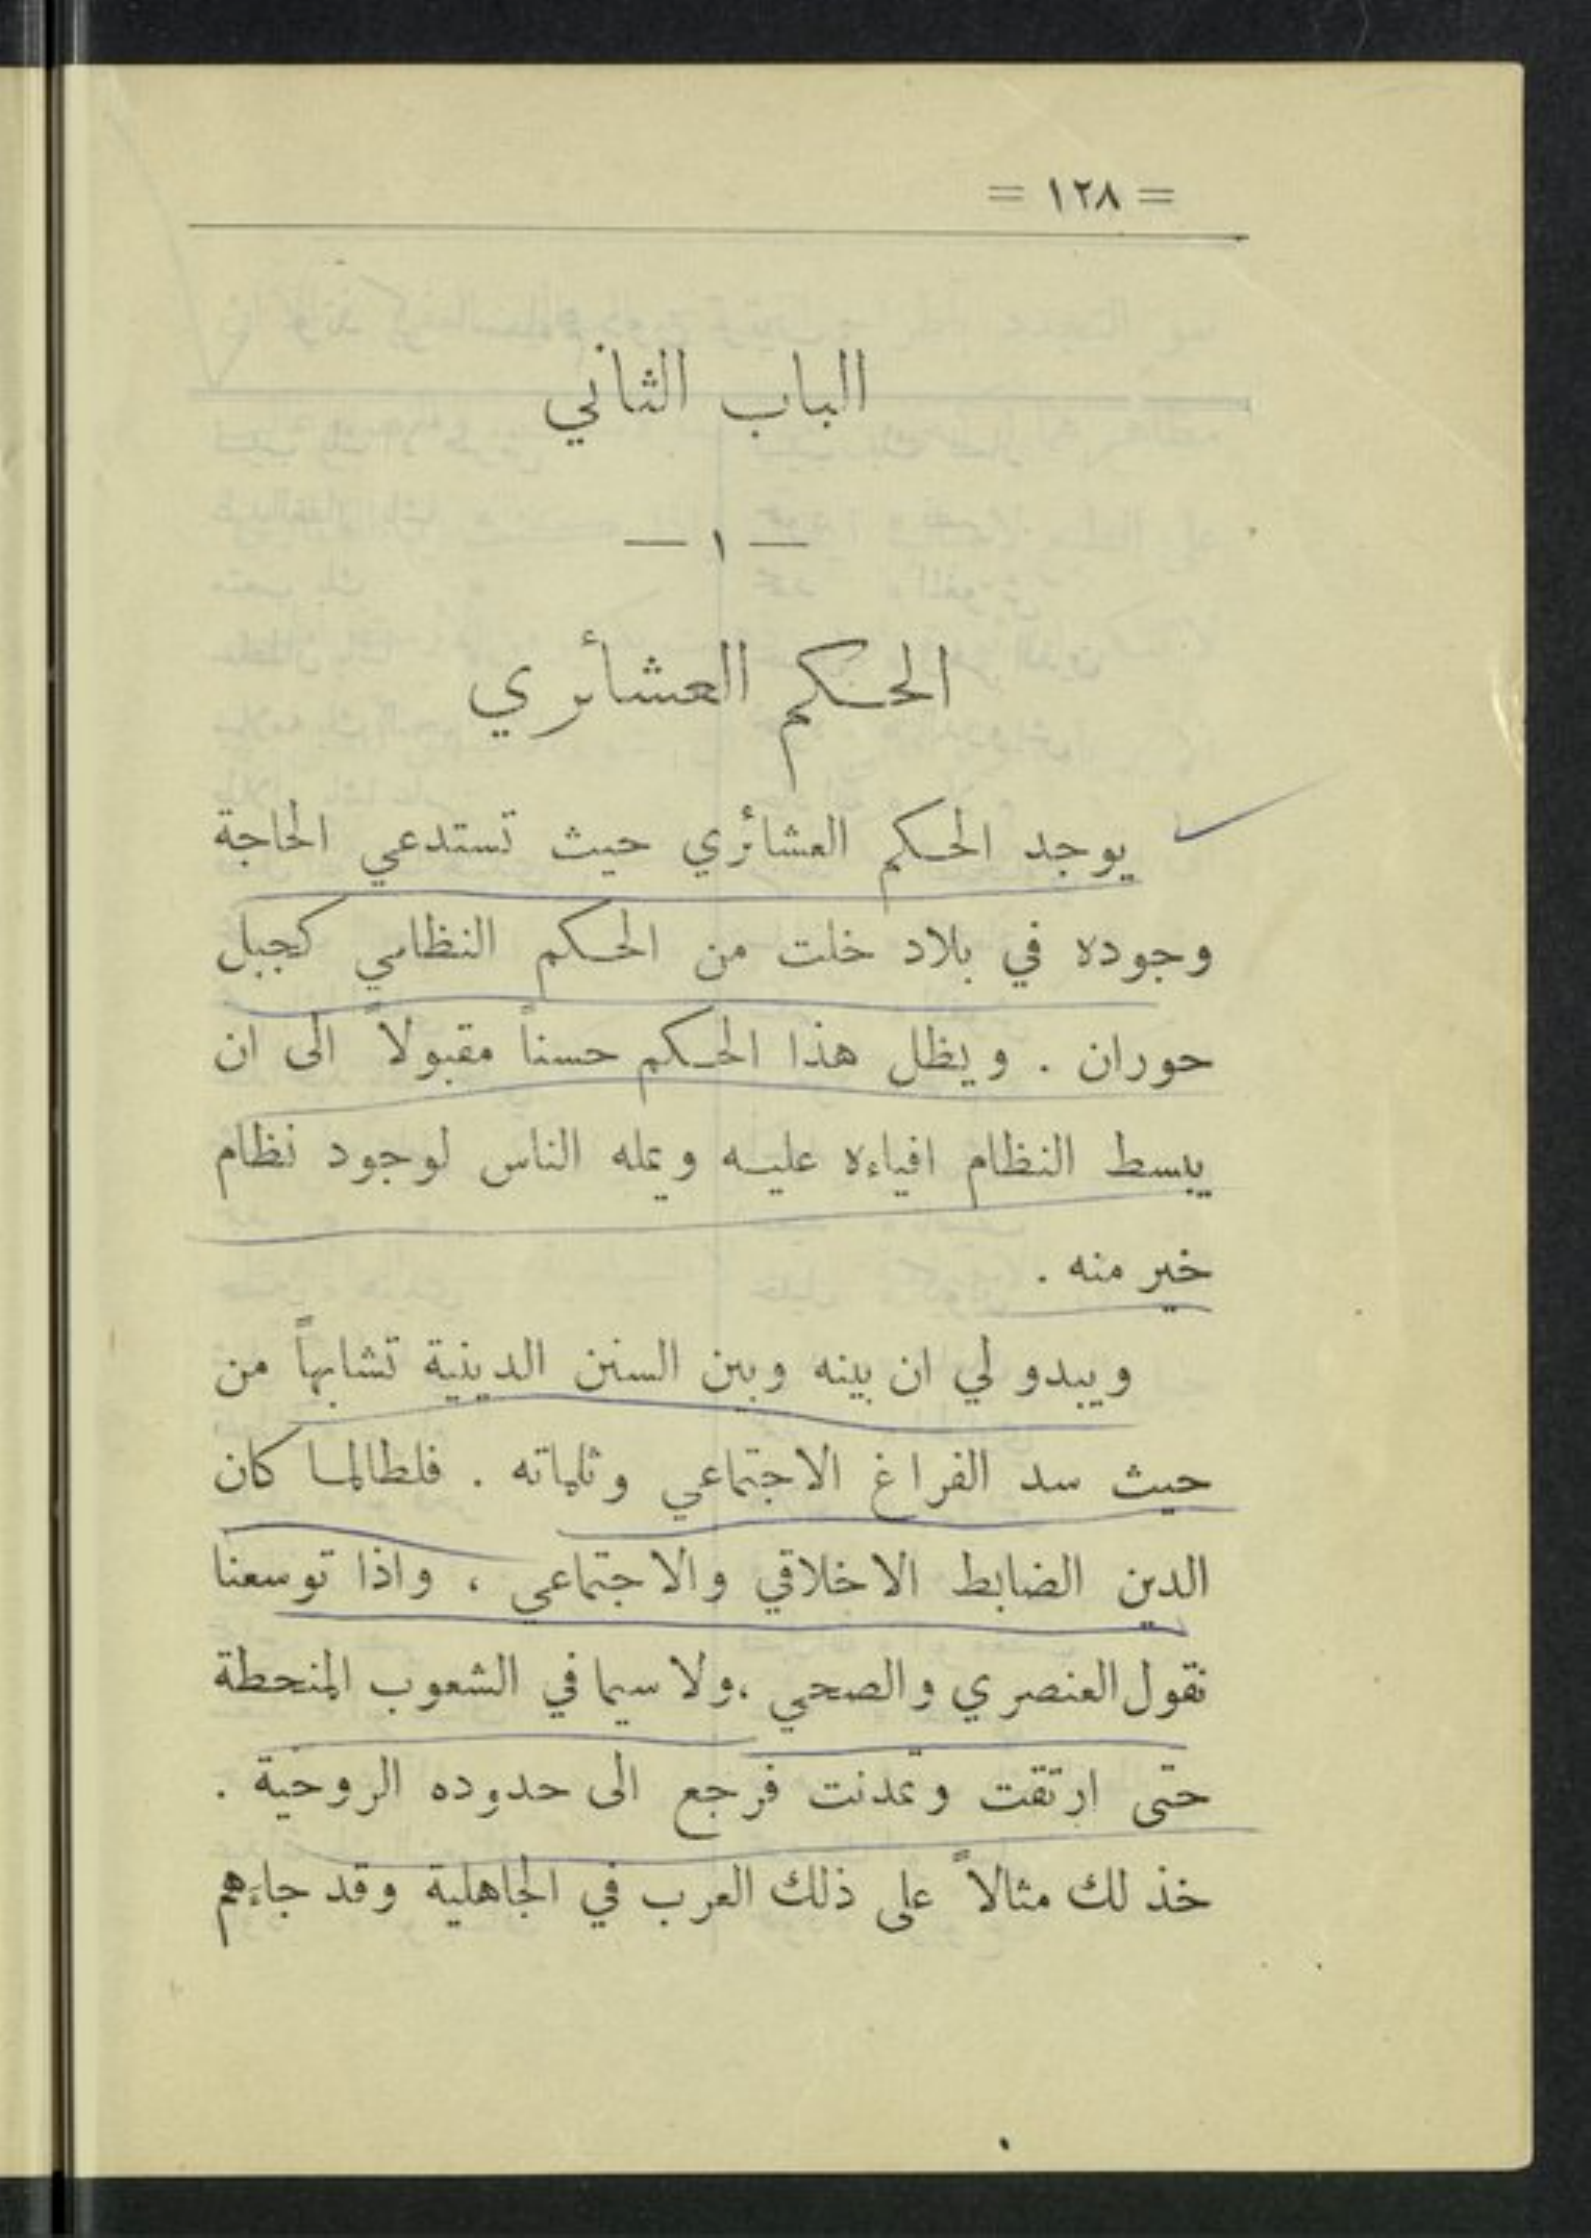 = ١٢٨ =
الباب الثاني
— ١ —
الحكم العشائري
يوجد الحكم العشائري حيث تستدعي الحاجة
وجوده في بلاد خلت من الحكم النظامي كجبل
حوران . ويظل هذا الحكم حسناً مقبولاً الى ان
يبسط النظام افياءه عليه ويمله الناس لوجود نظام
خير منه .
ويبدو لي ان بينه وبين السنن الدينية تشابهاً من
حيث سد الفراغ الاجتماعي وثلماته . فلطالما كان
الدين الضابط الاخلاقي والاجتماعي ، واذا توسعنا
نقول العنصري والصحي ،ولا سيما في الشعوب المنحطة
حتى ارتقت وتمدنت فرجع الى حدوده الروحية .
خذ لك مثالاً على ذلك العرب في الجاهلية وقد جاءهم